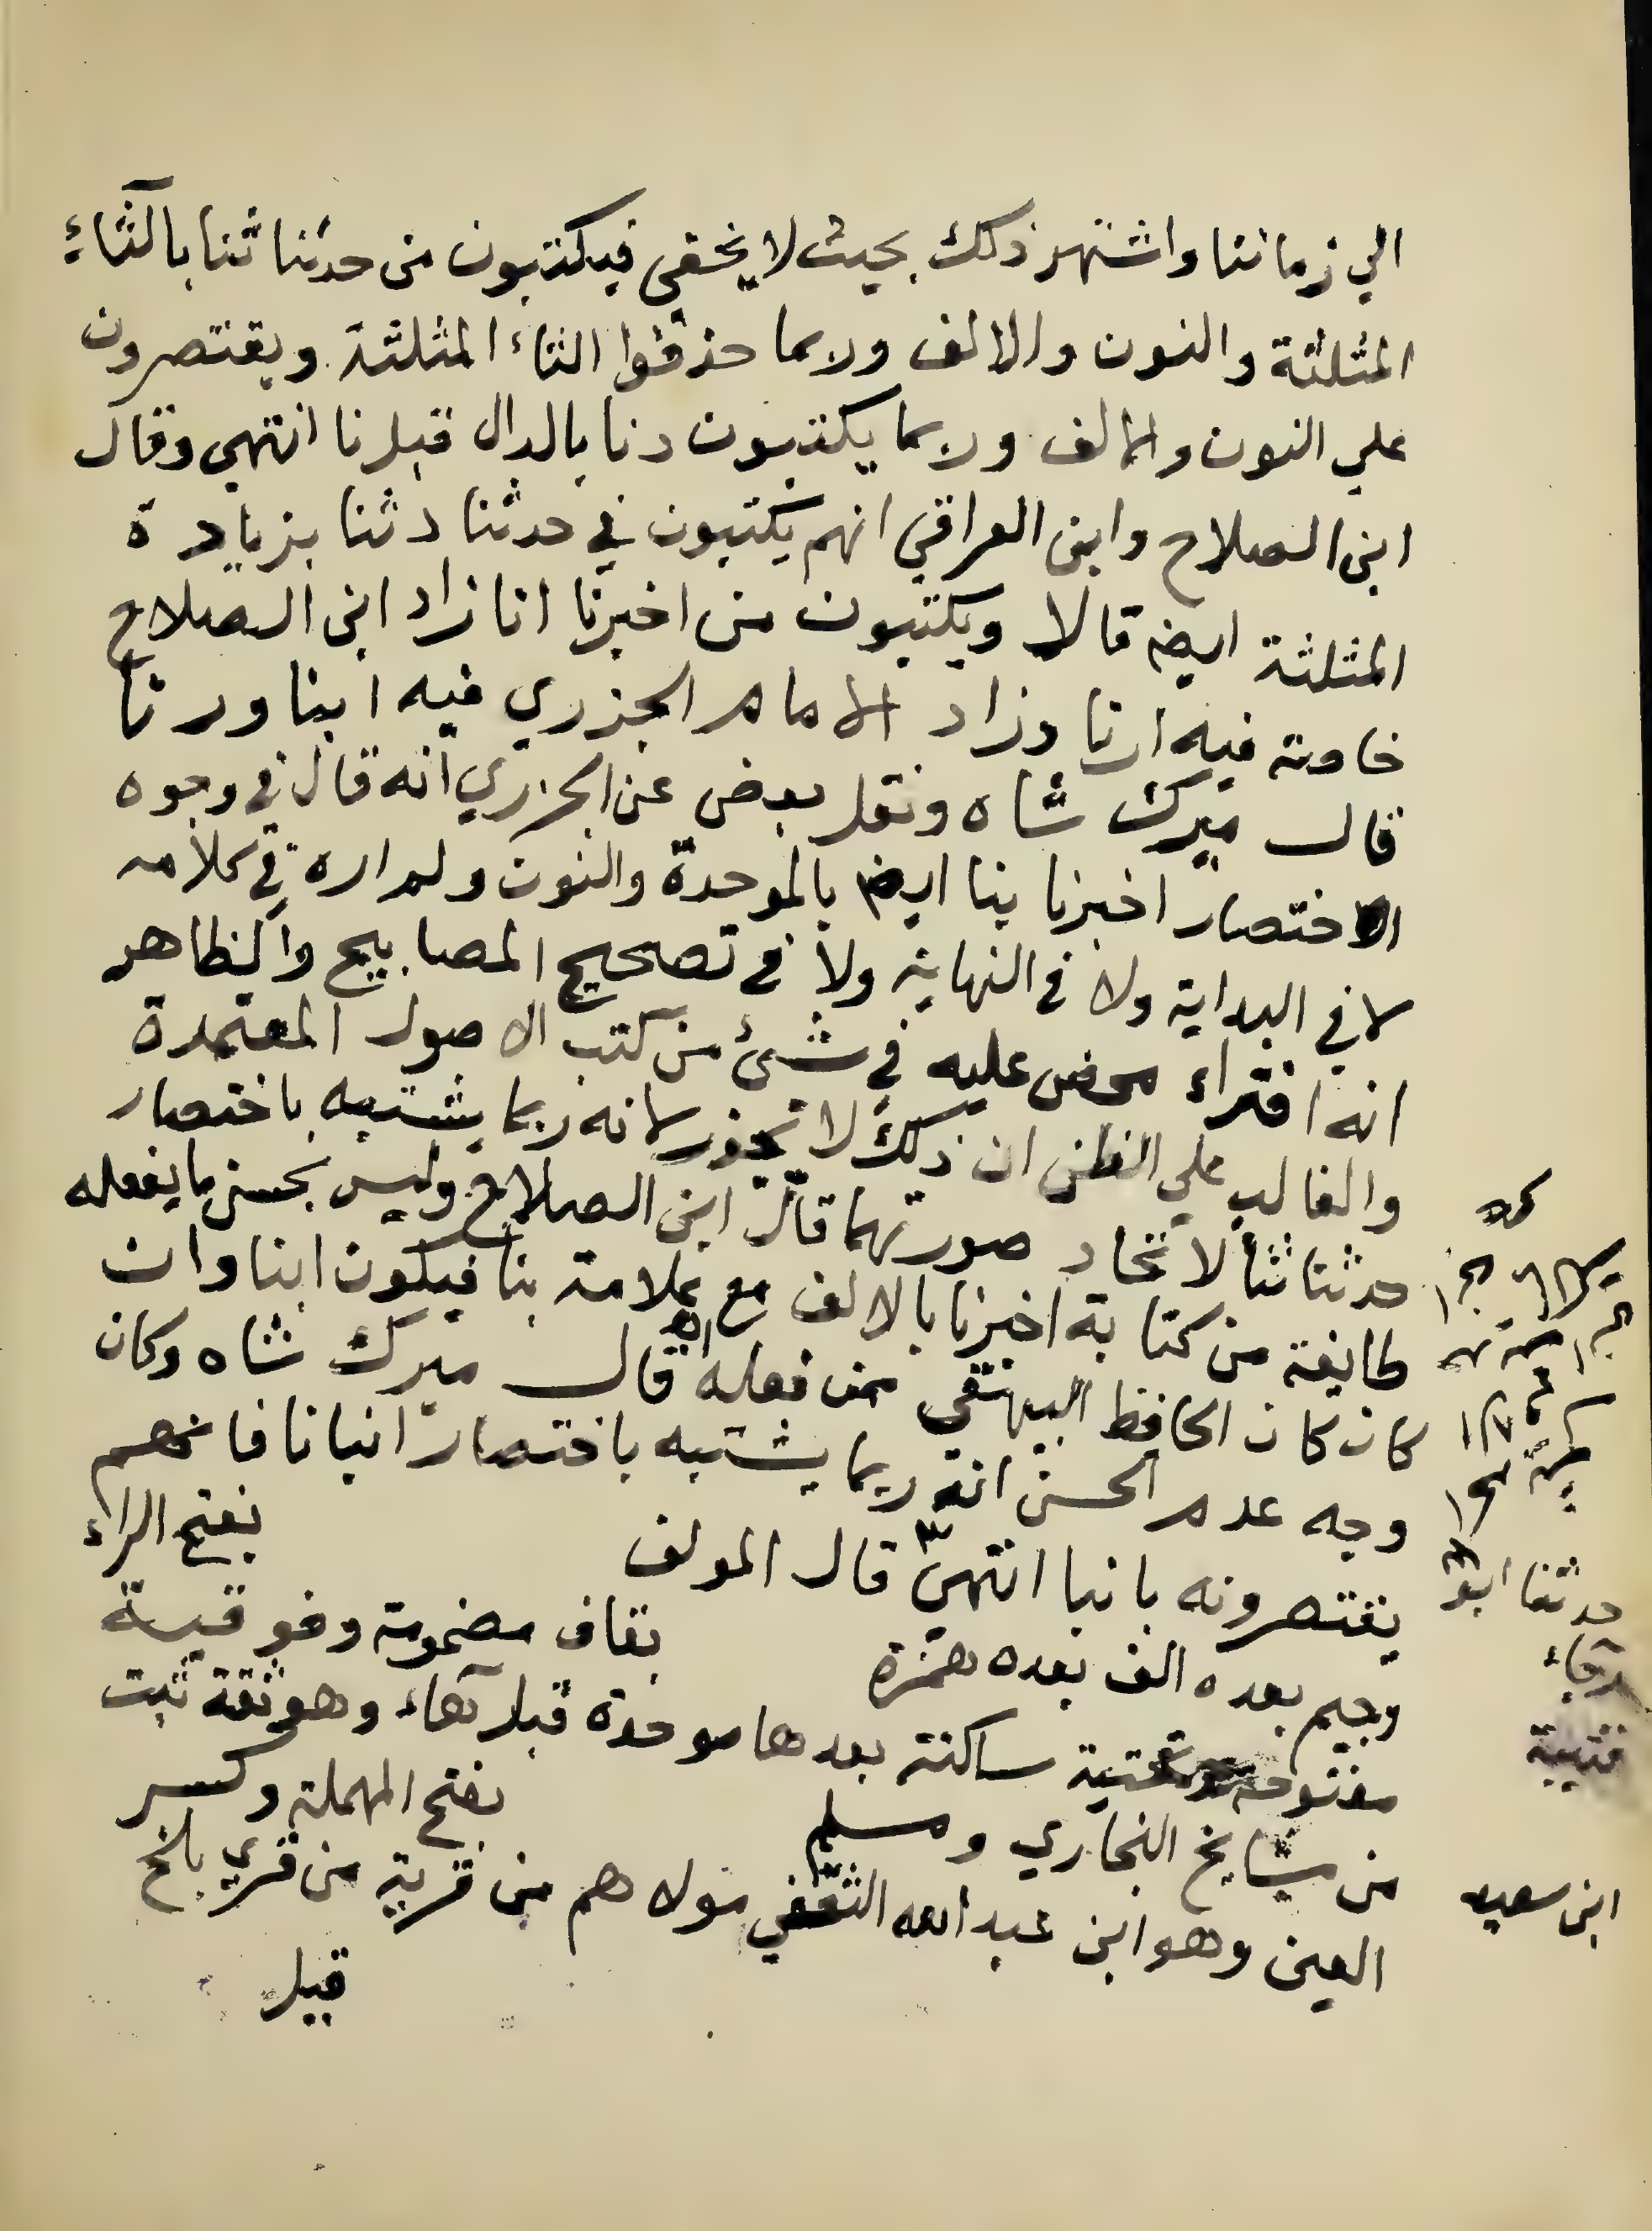 الي زماننا واشتهر ذلك بحيث لا يخفي فيكتبون من حدثنا ثنا بالثاء
المثلثة والنون والالف وربما حذفوا الثاء المثلثة ويقتصرون
علي النون والالف وربما يكتبون دنا بالدال قبل نا انتهي وقال
ابن الصلاح وابن العراقي انهم يكتبون في حدثنا دثنا بزيادة
المثلثة ايضه قالا ويكتبون من اخبرنا انا زاد ابن الصلاح
خاصة فيه ارنا وزاد الامام الجزري فيه ابنا ورنا
قال ميرك شاه ونقل بعض عن الجزري انه قال في وجوه
الاختصار اخبرنا بنا ايضه بالموحدة والنون ولم اره في كلامه
لا في البداية ولا في النهاية ولا في تصحيح المصابيح والظاهر
انه افتراء محض عليه في شئ من كتب الاصول المعتمدة
والغالب علي الظن ان ذلك لا يجوز لانه ربما يشتبه باختصار
حدثنا ثنا لاتحاد صورتهما قال ابن الصلاح وليس بحسن ما يفعله
طايفة من كتابة اخبرنا بالالف مع علامة بنا فيكون ابنا وان
كان كان الحافظ البيهقي ممن فعله اه قال ميرك شاه وكان
وجه عدم الحسن انه ربما يشتبه باختصار انبانا فانهم
يقتصرونه بانبا انتهي قال المولف بفتح الراء
حدثنا ابو
وجيم بعده الف بعده همزة بقاف مضمومة وفوقية
رجاء
مفتوحة وتحتية ساكنة بعدها موحدة قبل هاء وهو ثقة ثبت
قتيبة
من مشايخ البخاري ومسلم بفتح المهملة وكسر
ابن سعيد
العين وهو ابن عبد الله الثقفي مولاهم من قرية من قري بلخ
قيل